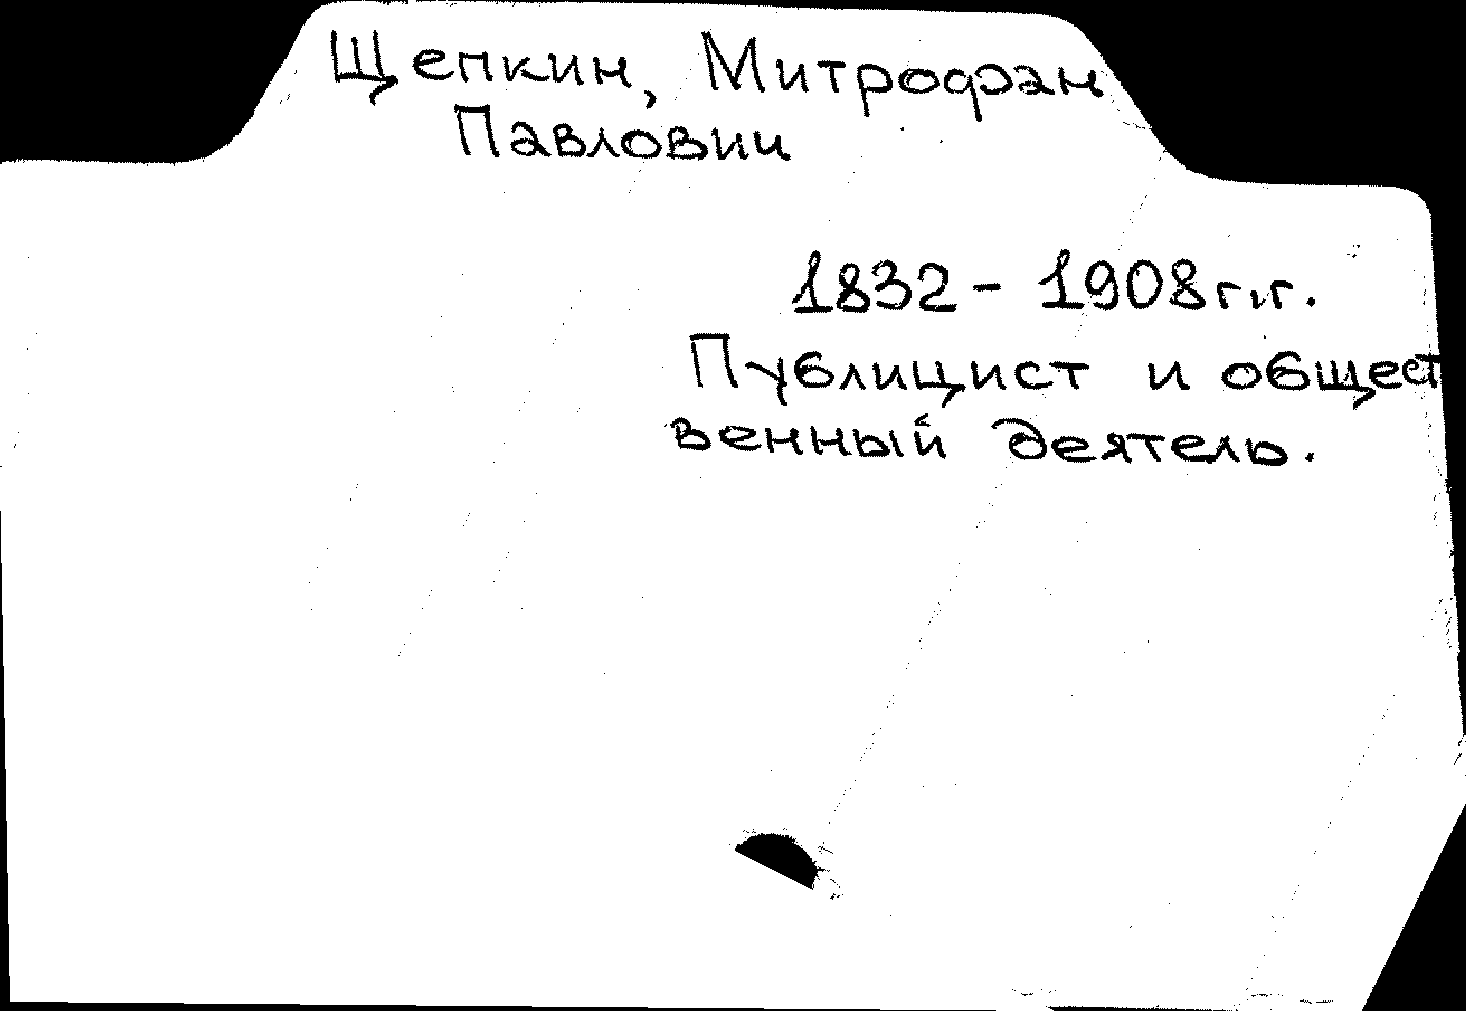 Щепкин, Митрофан
Павлович
1832 - 1908 г.г.
Публицист и общест
венный деятель.